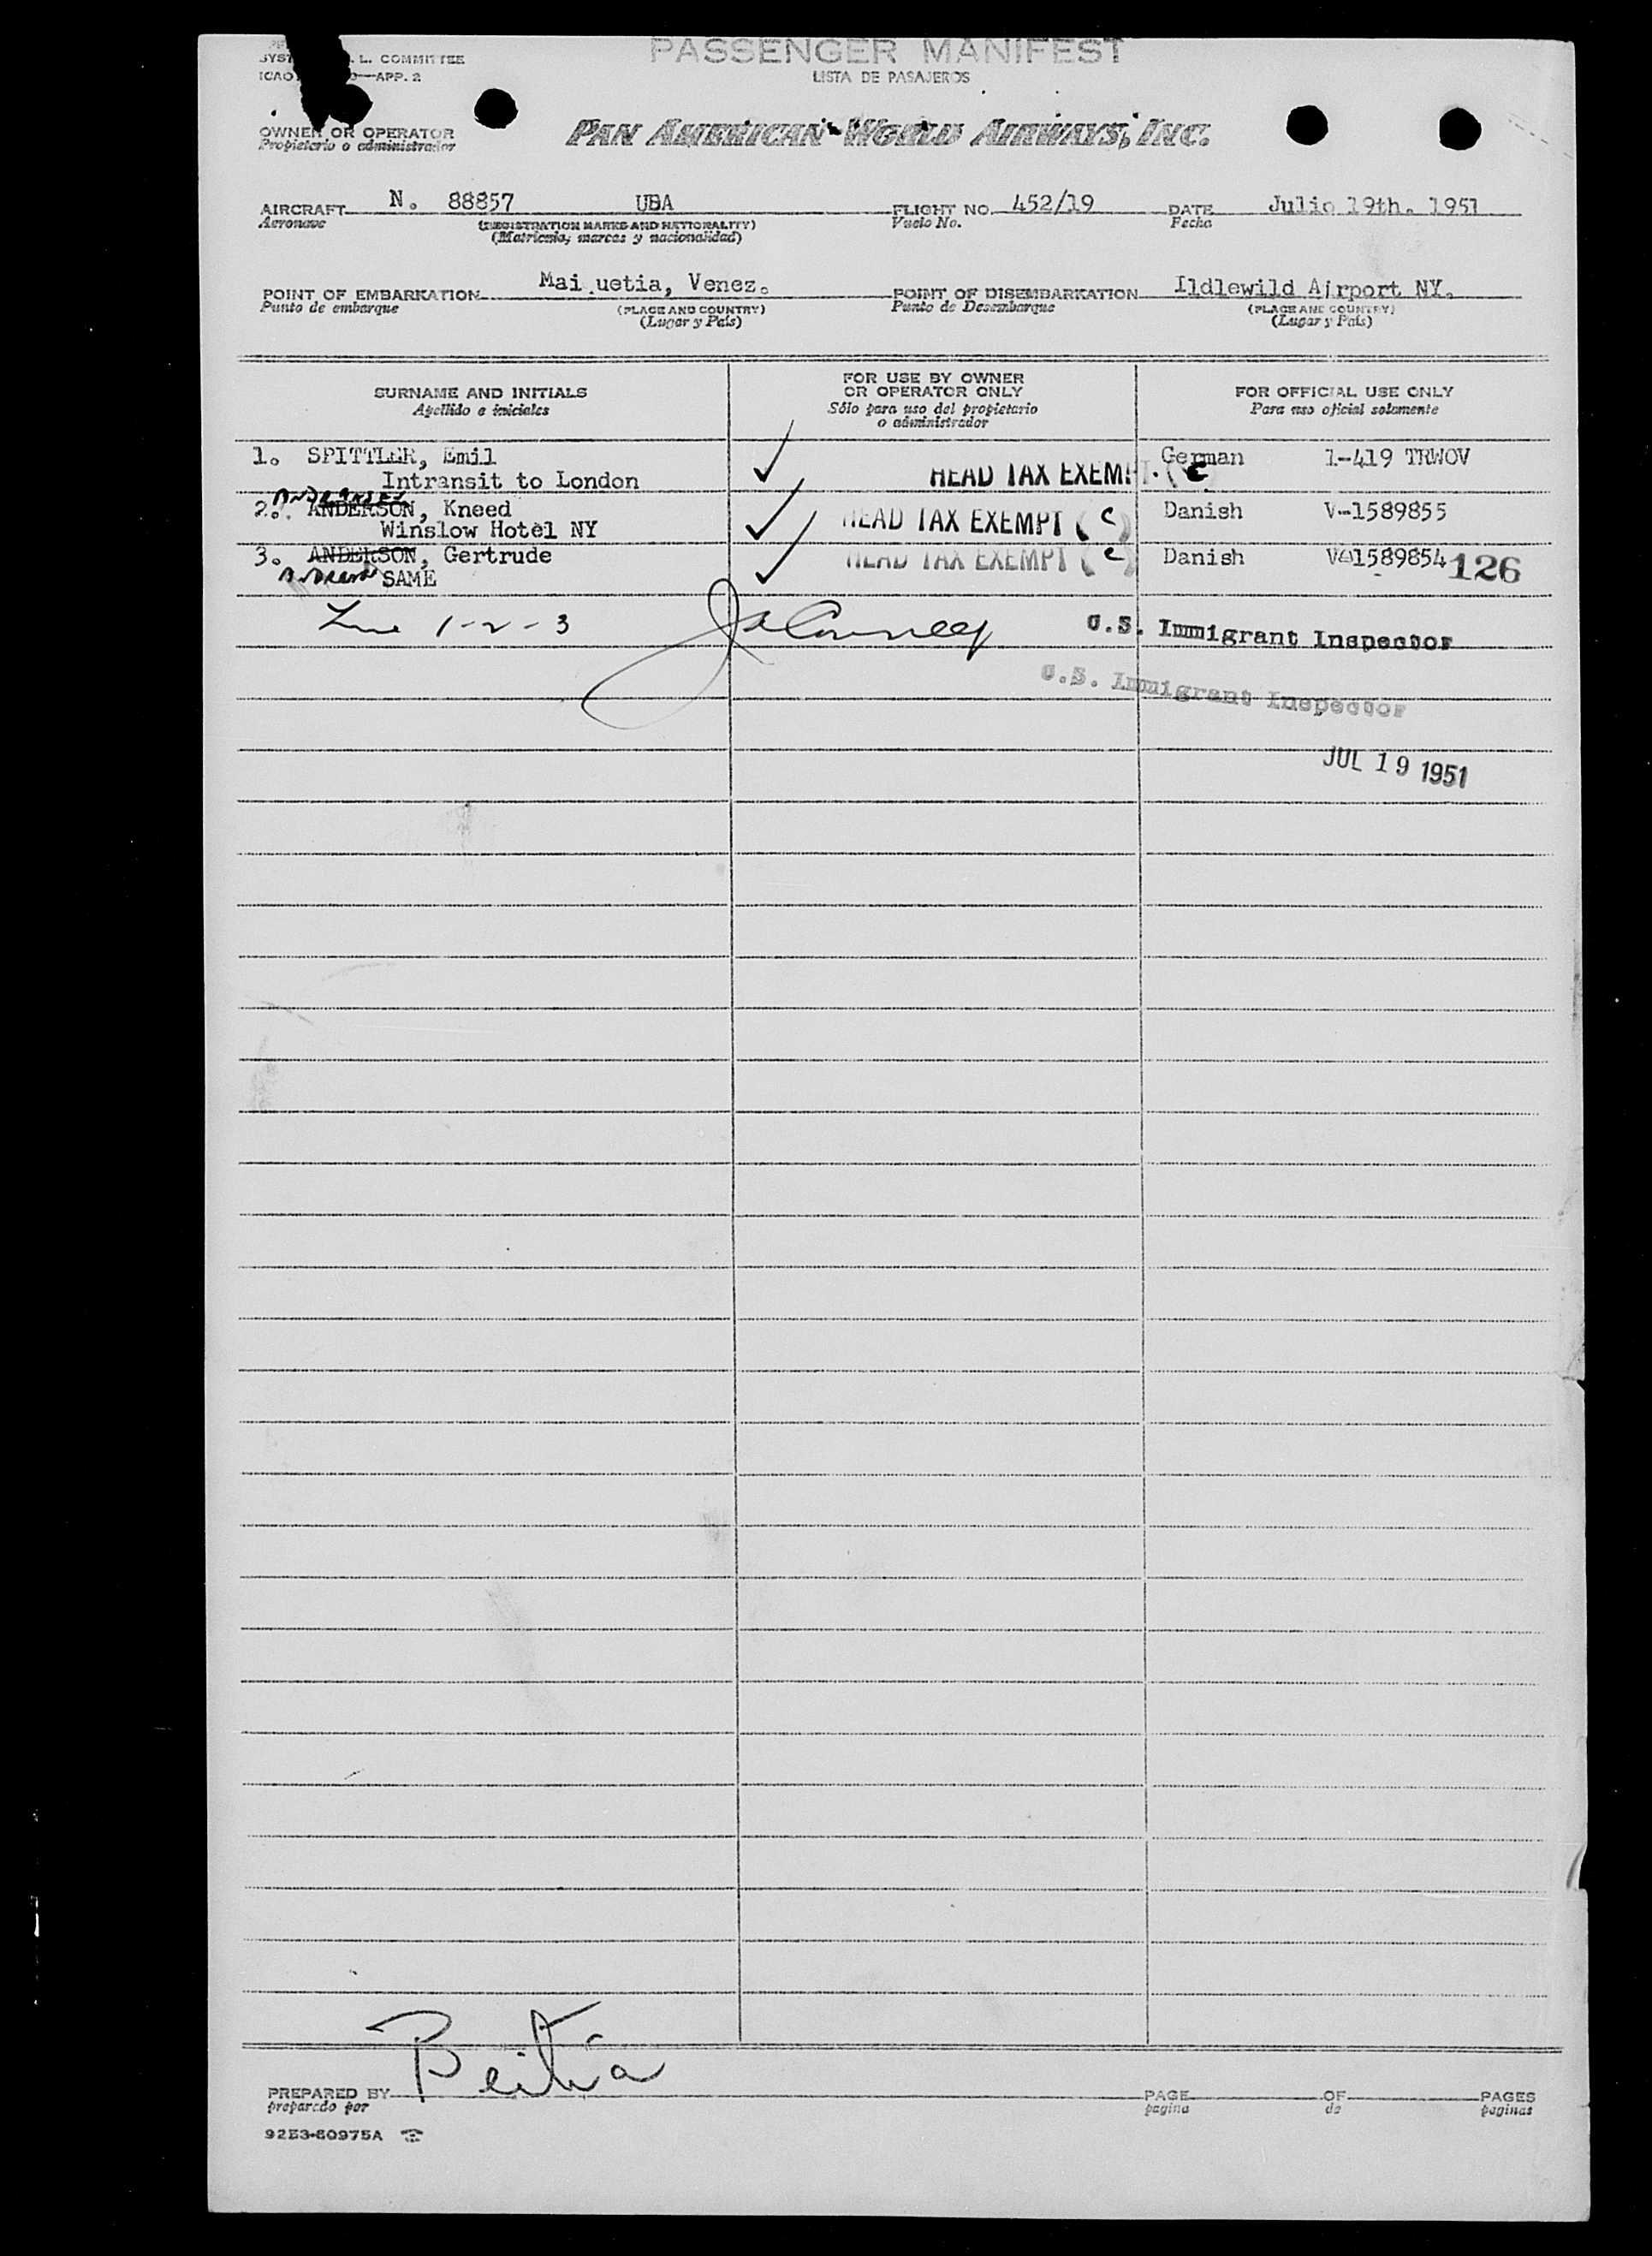 PASSENGER MANIFEST
LISTA DE PASAJEROS
L. COMMITTEE
ICAO —APP. 2
OWNER OR OPERATOR
Propietario o administrador
PAN AMERICAN WORLD AIRWAYS, INC.
AIRCRAFT N. 88857 UBA FLIGHT NO. 452/19 DATE Julio 19th. 1951
Aeronave (REGISTRATION MARKS AND NATIONALITY) Vuelo No. Fecha
(Matricula, marcas y nacionalidad)
POINT OF EMBARKATION Mai uetia, Venez. POINT OF DISEMBARKATION Ildlewild Airport NY.
Punto de embarque (PLACE AND COUNTRY) Punto de Desembarque (PLACE AND COUNTRY)
(Lugar y País) (Lugar y País)
SURNAME AND INITIALS
Apellido e iniciales
FOR USE BY OWNER
OR OPERATOR ONLY
Sólo para uso del propietario
o administrador
FOR OFFICIAL USE ONLY
Para uso oficial solamente
1. SPITTLER, Emil German 1-419 TRWOV
Intransit to London HEAD TAX EXEMPT. (c
ANDERSEN
2. ANDERSON, Kneed HEAD TAX EXEMPT (c) Danish V-1589855
Winslow Hotel NY
3. ANDERSON, Gertrude HEAD TAX EXEMPT (c) Danish V-1589854 126
ANDERSEN SAME
Line 1-2-3 U.S. Immigrant Inspector
U.S. Immigrant Inspector
JUL 19 1951
Beitia
PREPARED BY PAGE OF PAGES
preparado por pagina de paginas
92E3-60975A